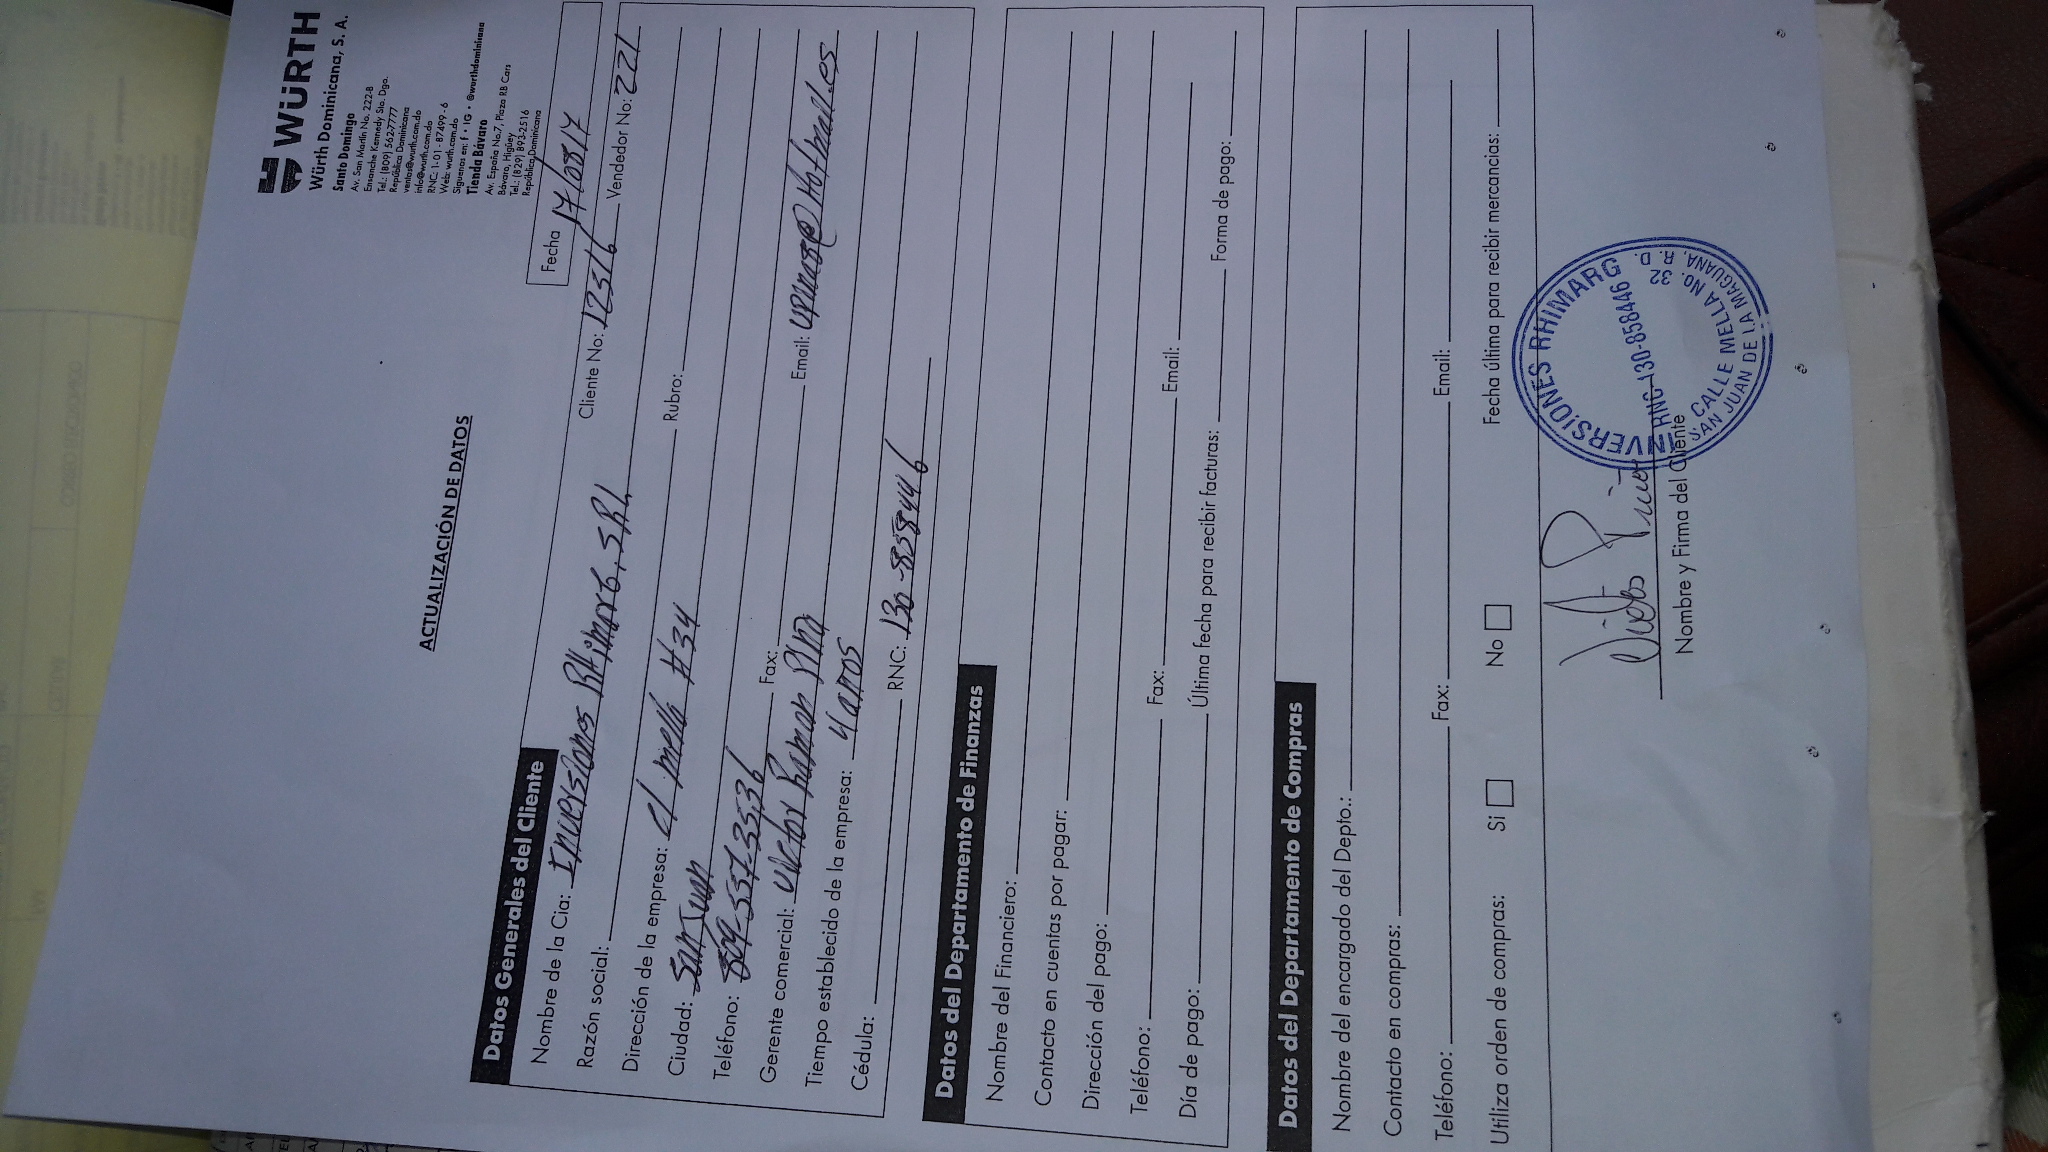 WÜRTH
Würth Dominicana, S. A.
Santo Domingo
Av. San Martín No. 222-B
Ensanche Kennedy Sto. Dgo.
Tel.: (809) 562-7777
República Dominicana
ventas@wurth.com.do
info@wurth.com.do
RNC: 1-01-87499-6
Web: wurth.com.do
Siguenos en: f • IG • @wurthdominicana
Tienda Bávaro
Av. España No.7, Plaza RB Cars
Bávaro, Higüey
Tel.: (829) 893-2516
República Dominicana
ACTUALIZACIÓN DE DATOS
Fecha 17/08/17
Datos Generales del Cliente
Nombre de la Cia: Inversiones RHimarG, SRL Cliente No: 12516 Vendedor No: 221
Razón social: Rubro:
Dirección de la empresa: el mella #34
Ciudad: San Juan
Teléfono: 809-557-3536 Fax: Email: vpina8@Hotmail.es
Gerente comercial: Victor Ramon Piña
Tiempo establecido de la empresa: 4 años
Cédula: RNC: 130-858446
Datos del Departamento de Finanzas
Nombre del Financiero:
Contacto en cuentas por pagar:
Dirección del pago:
Teléfono: Fax: Email:
Día de pago: Última fecha para recibir facturas: Forma de pago:
Datos del Departamento de Compras
Nombre del encargado del Depto.:
Contacto en compras:
Teléfono: Fax: Email:
Utiliza orden de compras: Si No Fecha última para recibir mercancias:
Nombre y Firma del Cliente
INVERSIONES RHIMARG
RNC-130-858446
CALLE MELLA No. 32
SAN JUAN DE LA MAGUANA, R. D.